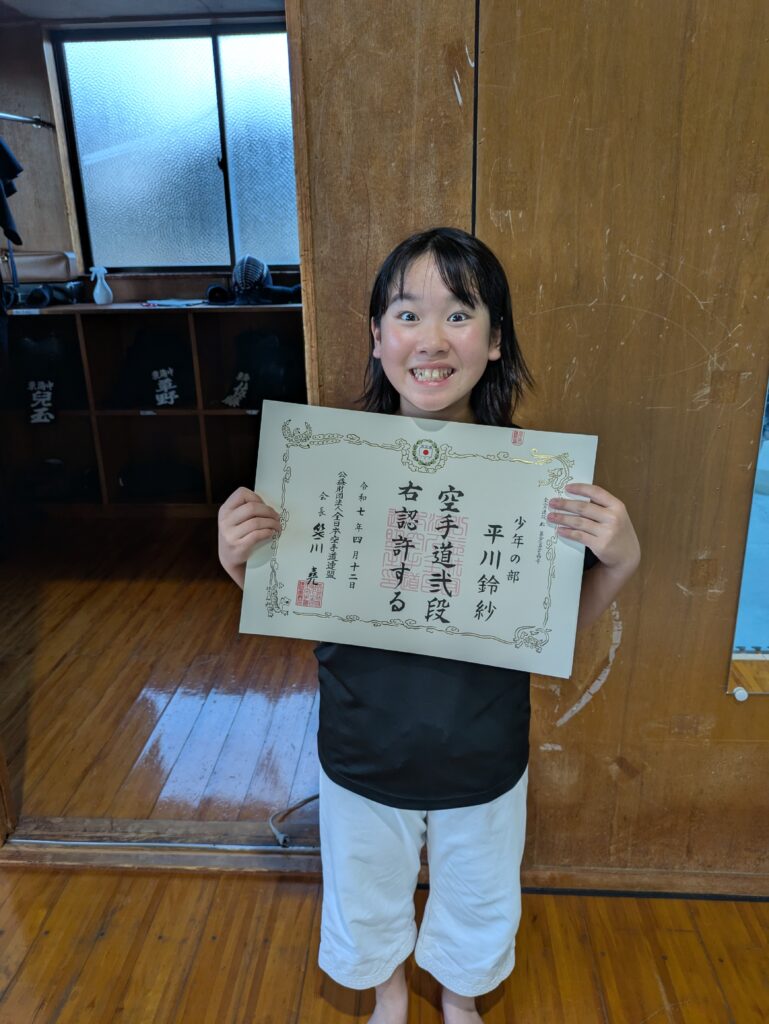 少年の部
平川鈴紗
空手道弐段
右認許する
令和七年四月十二日
公益財団法人全日本空手道連盟
会長 笹川 堯
兒玉
草野